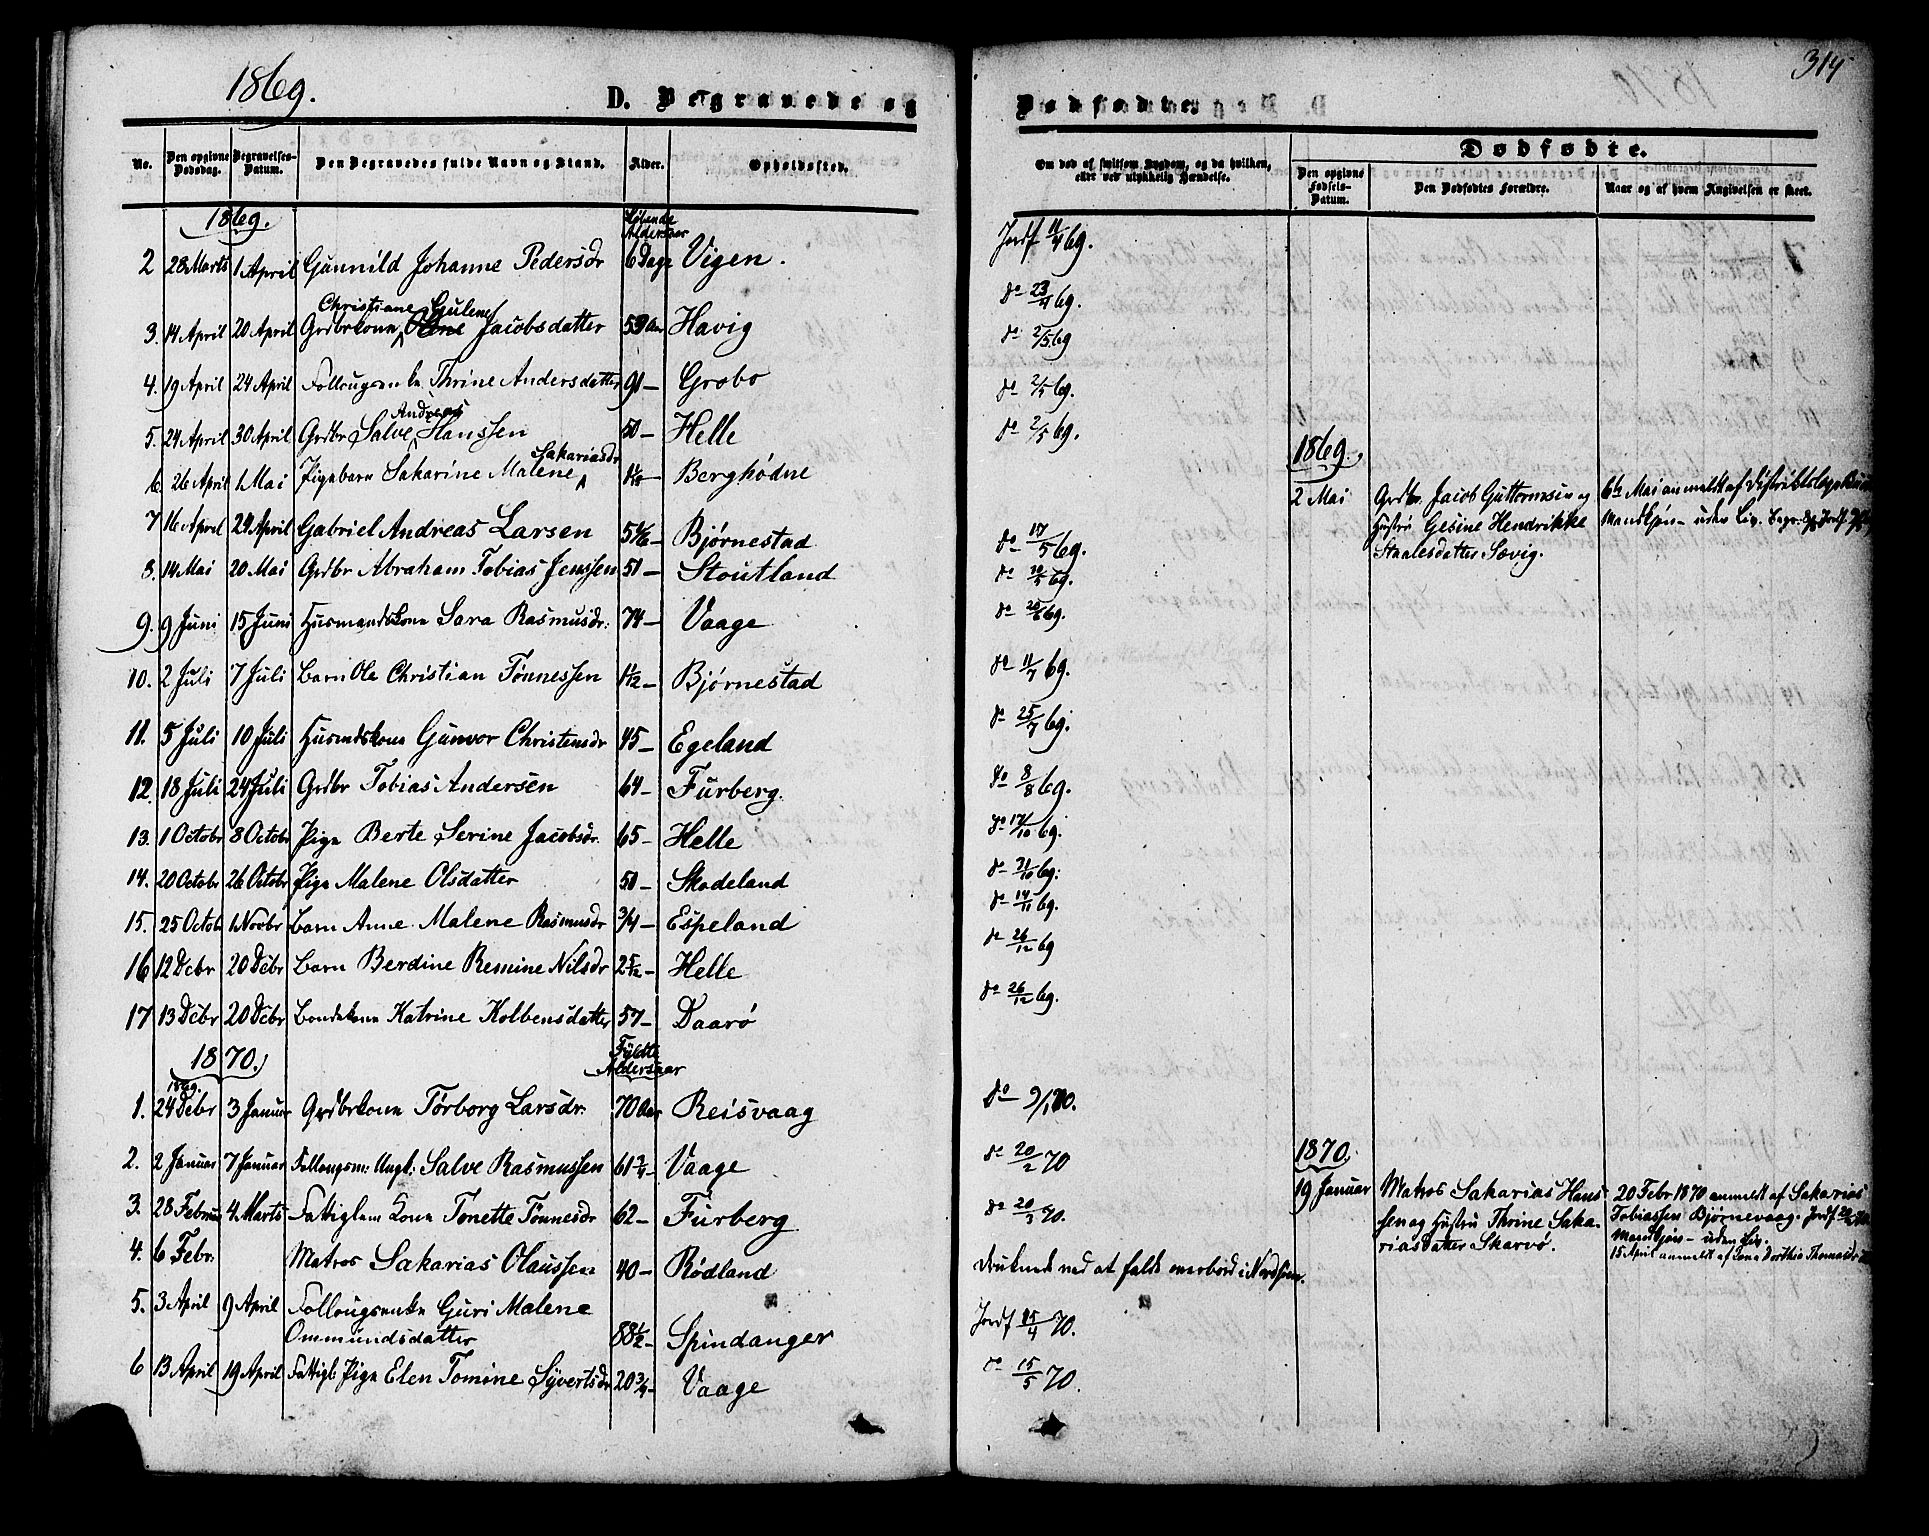 1869.
D. Begravede og
No. Den opgivne Dødsdag. Begravelses-Datum. Den Begravedes fulde Navn og Stand. Alder. Opholdssted.
1869. Løbende Aldersaar
2 28 Marts 1 April Gunnild Johanne Pedersdr 6 Dage Vigen.
Christiane Gulene
3. 14 April 20 April Grdbrkone Jacobsdatter 59 Aar Havig
4. 19 April 24 April Thrine Andersdatter 91 — Grobo
Andreas
5. 24 April 30 April Grdbr Salve Hanssen 50 — Helle
Sakariasdr
6. 26 April 1 Mai Pigebarn Sakarine Malene Berghødne
7 16 April 29 April Gabriel Andreas Larsen Bjørnestad
8. 14 Mai 20 Mai Grdbr Abraham Tobias Jenssen 51 — Stoutland
9. 9 Juni 15 Juni Husmandskone Sara Rasmusdr: 74 — Vaage
10. 2 Juli 7 Juli Barn Ole Christian Tønnessen 1 1/12 — Bjørnestad
11. 5 Juli 10 Juli Husmdskone Gunvor Christensdr 45 — Egeland
12. 18 Juli 24 Juli Grdbr Tobias Andersen 64 — Furberg.
13. 1 Octobr 8 Octobr Pige Berte Serine Jacobsdr. 65 — Helle
14. 20 Octobr 26 Octobr Pige Malene Olsdatter 50 — Skodeland
15. 25 Octob 1 Novbr Barn Anne Malene Rasmusdr 3/4 — Espeland
16 12 Decbr 20 Decbr Barn Berdine Remine Nilsdr 2 5/12 — Helle
17 13 Decbr 20 Decbr Bondekone Katrine Kolbensdatter 57 — Daarø
1870. Fyldte Aldersaar
1869.
1. 24 Decbr 3 Januar Grdbrkone Torborg Larsdr. 70 Aar Reisvaag
2. 2 Januar 7 Januar Follougsm: Ungk: Salve Rasmussen 61 3/4 — Vaage
3. 28 Februar 4 Marts Fattiglem Kone Tonette Tønnesdr 62 — Furberg
4. 6 Febr. Matros Sakarias Olaussen 40 — Rødland
5. 3 April 9 April Follougsenke Guri Malene
Ommundsdatter 88 1/2 — Spindanger
6 13 April 19 April Fattigl: Pige Elen Tomine Syvertsdr 20 3/4 — Vaage
314
Dødfødte.
Om død af smitsom Sygdom, og da hvilken, eller ved ulykkelig Hændelse.
Dødfødte.
Den opgivne Fødsels-Datum. Den Dødfødtes Forældre. Naar og af hvem Angivelsen er skeet.
Jordf 11/4 69.
do 23/4 69.
do 2/5 69
do 2/5 69.
do 2/5 69.
1869.
2 Mai Grdbr. Jacob Guttormsen og 6te Mai anmeldt af Distriktslæge
Hustru Gesine Hendrikke Mandkjøn — uden Liv.
Staalesdatter Sævig.
do 17/5 69.
do 69.
do 69.
do 11/7 69.
do 25/7 69.
do 8/8 69.
do 17/10 69.
do 31/10 69.
do 14/11 69.
do 26/12 69
do 26/12 69.
do 9/1 70.
do 20/2 70
do 20/3 70.
1870.
19 Januar Matros Sakarias Hans- 20 Febr 1870 anmeldt af Sakarias
sen og Hustru Thrine Saka- Tobiassen Bjørnevaag. Jordf
riasdatter Skarvø. Mandkjøn — uden Liv.
15 April anmeldt af Kone Dorthea Thomasdr
Druknede ved at falde overbord i Nordsøen.
Jordf 70.
do 15/5 70.